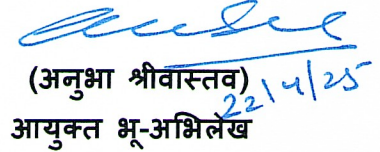 (अनुभा श्रीवास्तव)
22/4/25
आयुक्त भू-अभिलेख